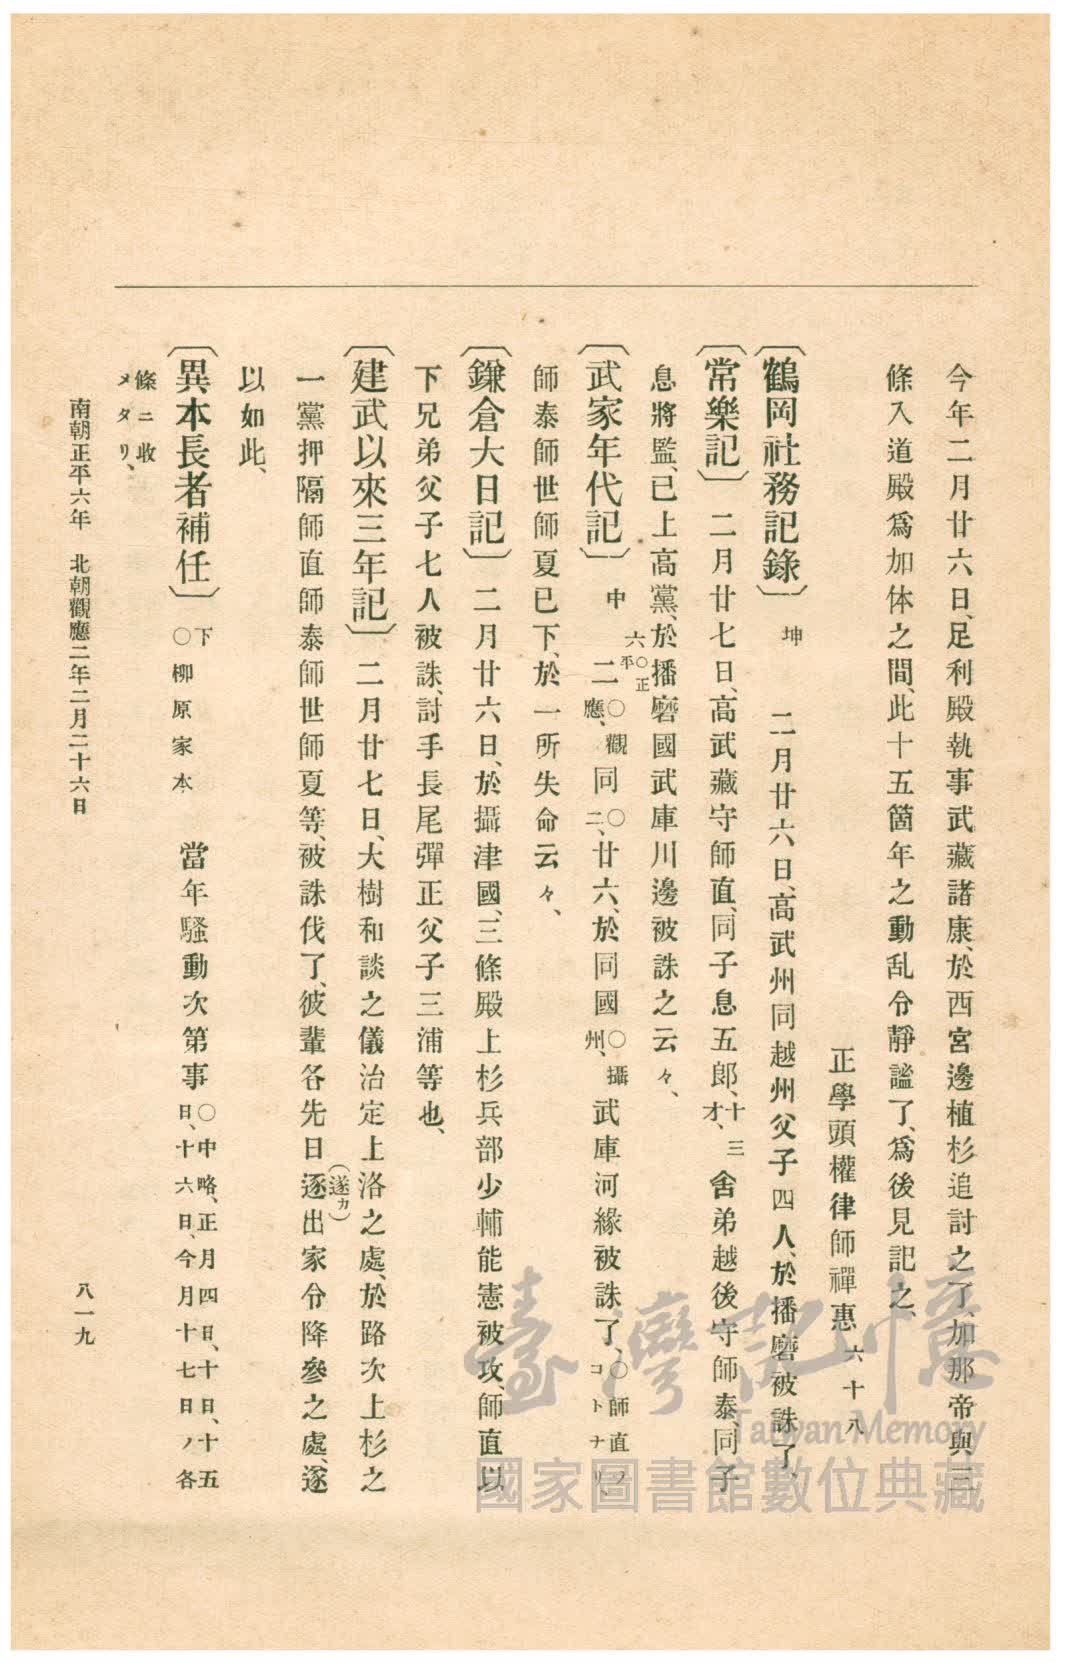 今年二月廿六日、足利殿執事武藏諸康、於西宮邊植杉追討之了、加那帝與三
條入道殿爲加体之間、此十五箇年之動乱令靜謐了、爲後見記之、
正學頭權律師禪惠六十八
〔鶴岡社務記錄〕坤 二月廿六日、高武州同越州父子四人、於播磨被誅了、
〔常樂記〕 二月廿七日、高武藏守師直、同子息五郎、十三才、舍弟越後守師泰、同子
息將監、已上高黨、於播磨國武庫川邊被誅之云々、
〔武家年代記〕中 六〇正平二〇觀應、同〇二、廿六、於同國〇攝州、武庫河緣被誅了、〇師直ノコトナリ、
師泰師世師夏已下、於一所失命云々、
〔鎌倉大日記〕 二月廿六日、於攝津國、三條殿上杉兵部少輔能憲被攻、師直以
下兄弟父子七人被誅、討手長尾彈正父子三浦等也、
〔建武以來三年記〕 二月廿七日、大樹和談之儀治定上洛之處、於路次上杉之
一黨押隔師直師泰師世師夏等、被誅伐了、彼輩各先日逐(遂カ)出家令降參之處、遂
以如此、
〔異本長者補任〕下〇柳原家本 當年騷動次第事〇中略、正月四日、十日、十五日、十六日、今月十七日ノ各
條ニ收メタリ、
南朝正平六年 北朝觀應二年二月二十六日
八一九
臺灣記憶
Taiwan Memory
國家圖書館數位典藏